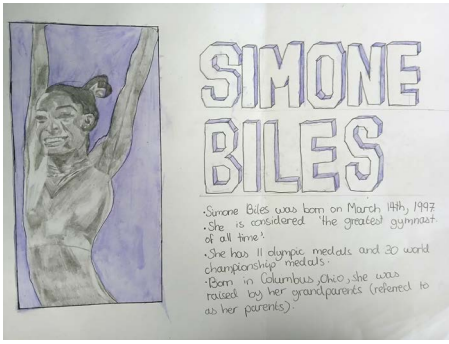 SIMONE
BILES
·Simone Biles was born on March 14th, 1997
·She is considered 'the greatest gymnast
of all time'
·She has 11 olympic medals and 30 world
championship medals.
·Born in Columbus, Ohio, she was
raised by her grandparents (referred to
as her parents).